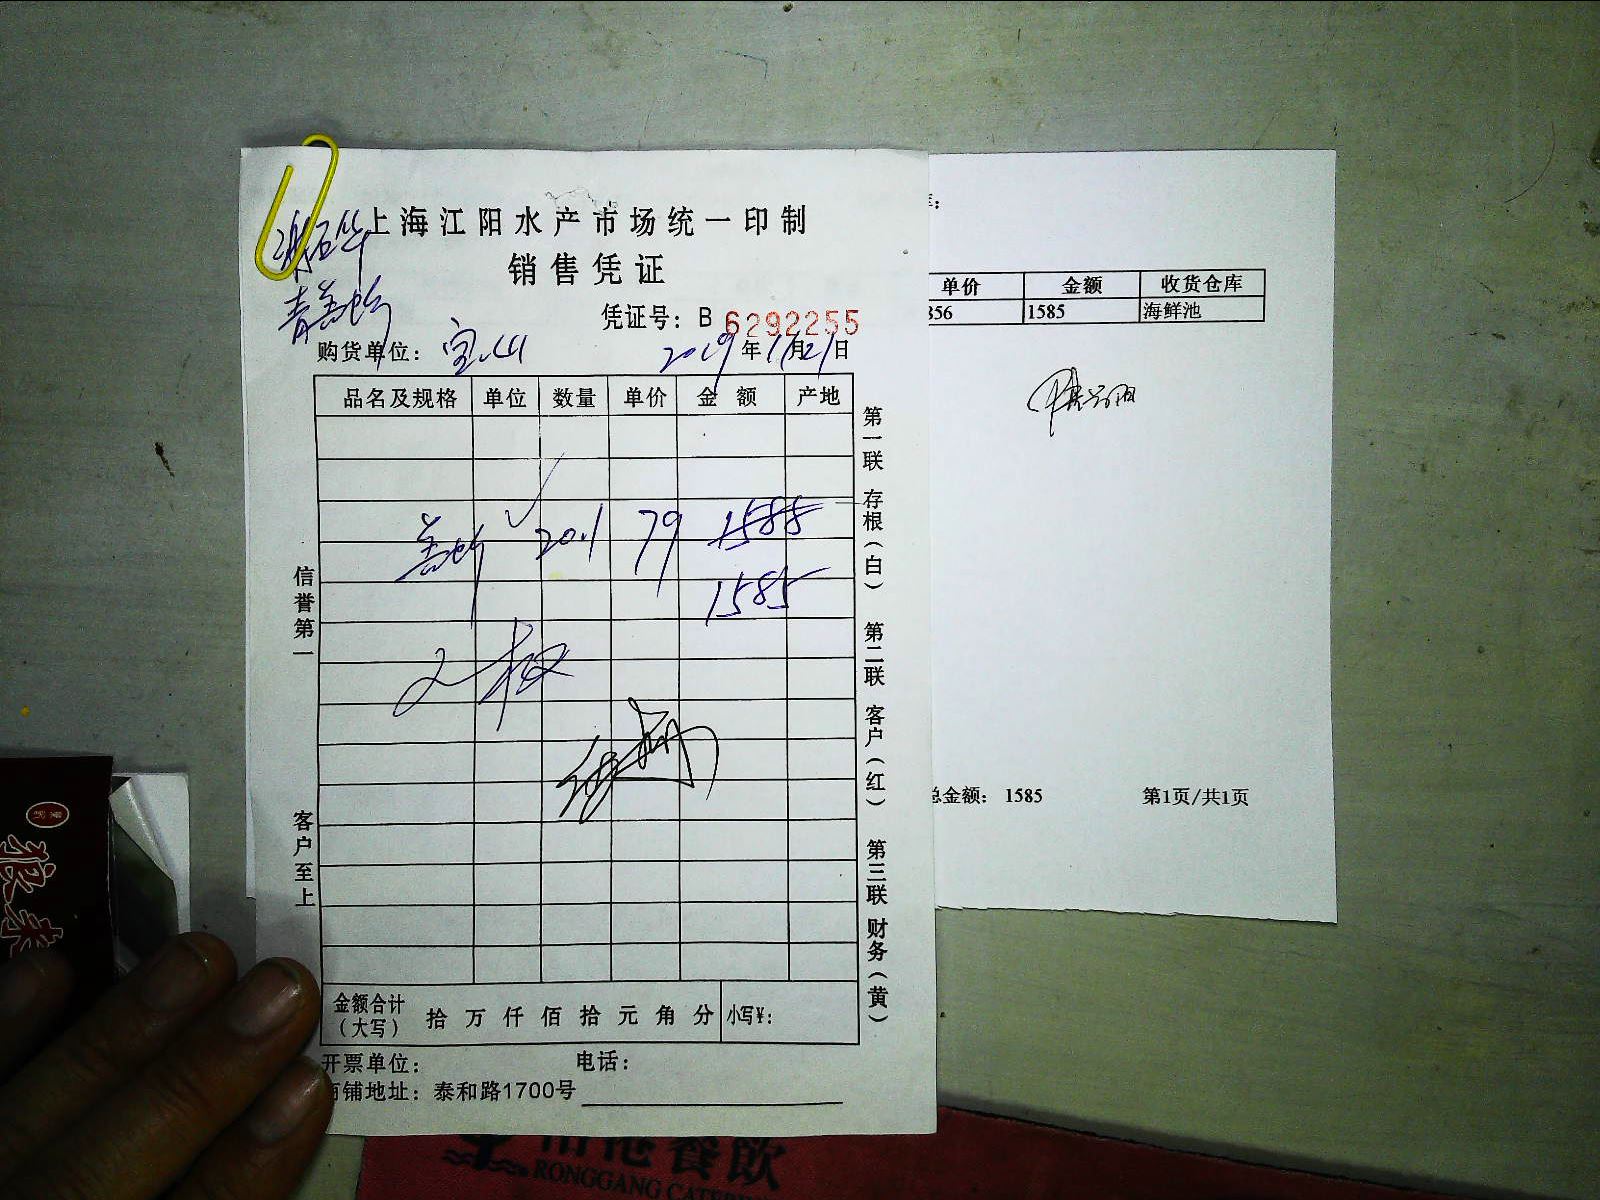 上海江阳水产市场统一印制
销售凭证
凭证号：B 6292255
购货单位：宝山 2019年11月21日
品名及规格 单位 数量 单价 金额 产地
20.1 79 1585
1585
信誉第一
客户至上
第一联 存根（白） 第二联 客户（红） 第三联 财务（黄）
金额合计（大写） 拾 万 仟 佰 拾 元 角 分 小写¥：
开票单位： 电话：
铺地址：泰和路1700号
单价 金额 收货仓库
856 1585 海鲜池
总金额： 1585 第1页/共1页
餐飲
RONGGANG